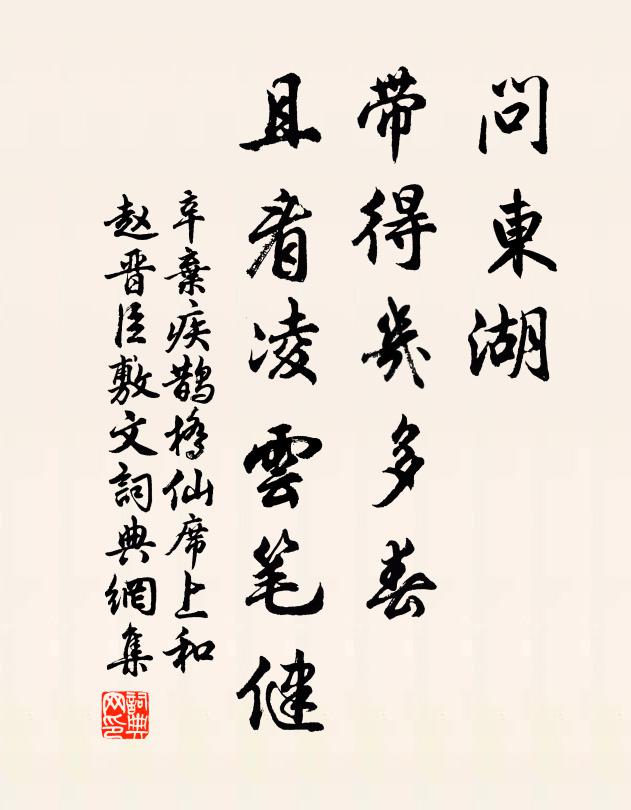 問東湖
帶得幾多春
且看凌雲笔健
辛棄疾鵲橋仙席上和
赵晋臣敷文詞典網集
詞典網印